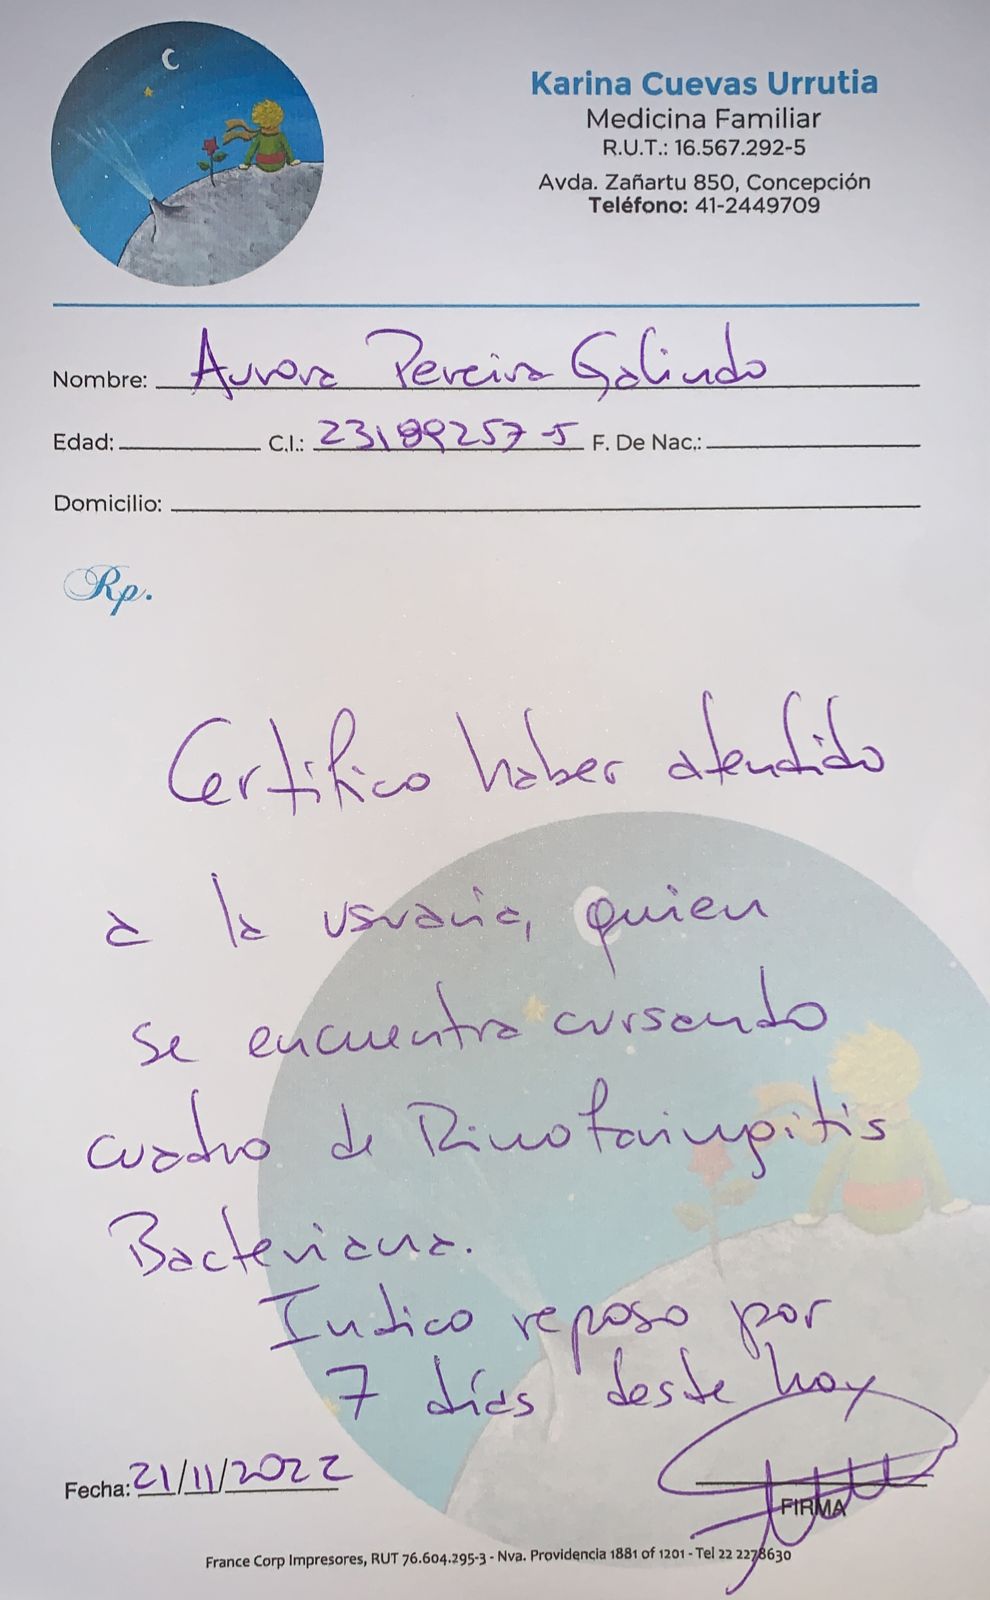 Karina Cuevas Urrutia
Medicina Familiar
R.U.T.: 16.567.292-5
Avda. Zañartu 850, Concepción
Teléfono: 41-2449709
Nombre: Aurora Pereira Galindo
Edad: C.I.: 23199257-5 F. De Nac.:
Domicilio:
Rp.
Certifico haber atendido
a la usuaria, quien
se encuentra cursando
cuadro de Rinofaringitis
Bacteriana.
Indico reposo por
7 días desde hoy
Fecha: 21/11/2022
FIRMA
France Corp Impresores, RUT 76.604.295-3 - Nva. Providencia 1881 of 1201 - Tel 22 2278630